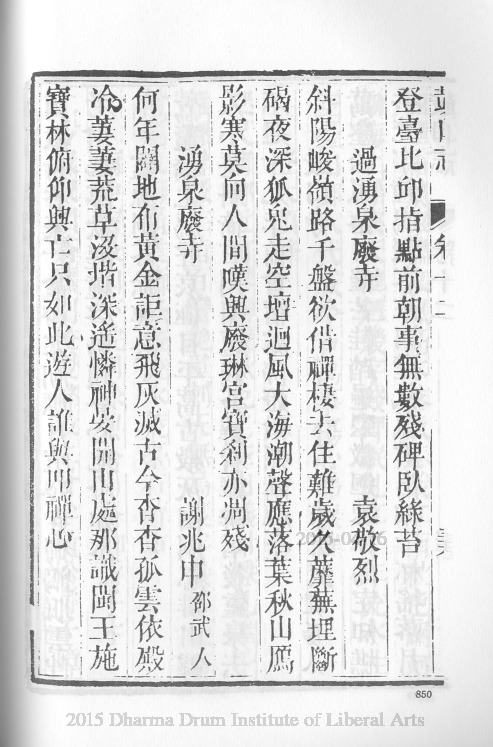 鼓山志 卷十二
登臺比卽指點前朝事無數殘碑臥綠苔
過湧泉廢寺 袁敬烈
斜陽峻嶺路千盤欲借禪棲去住難歲久蘼蕪埋斷
碣夜深狐兎走空壇迴風大海潮聲應落葉秋山鴈
影寒莫向人間嘆興廢琳宫寶刹亦凋殘
湧泉廢寺 謝兆申 邵武人
何年闢地布黃金詎意飛灰滅古今杳杳孤雲依殿
冷萋萋荒草沒堦深遙憐神晏開山處那識閩王施
寶林俯仰興亡只如此遊人誰與叩禪心
850
2015 Dharma Drum Institute of Liberal Arts